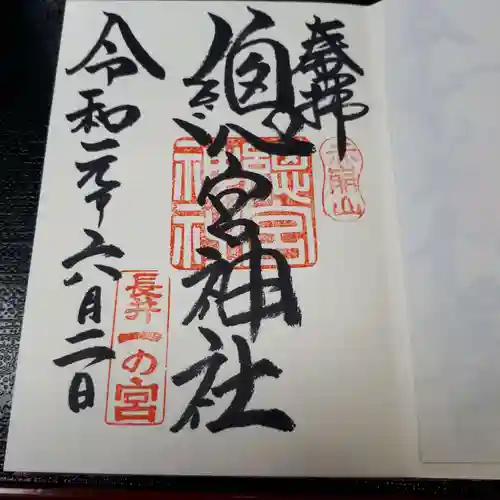 奉拝
赤崩山
總宮神社
總宮神社
令和元年六月二日
長井
一の宮